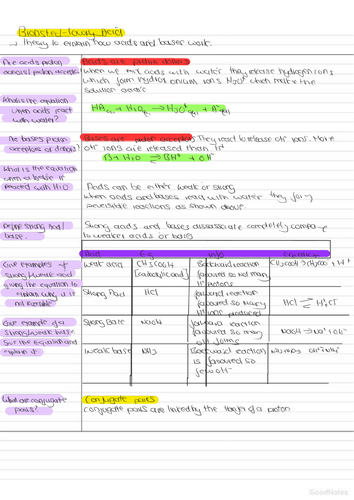 Bronsted-lowry Acid
→ Theory to explain how acids and bases work.
Are acids proton
donors/proton acceptors
Acids are proton donors
when we mix acids with water they release hydrogen ions
which form hydroxonium ions H₃O⁺ which makes the
solution acidic
What is the equation
when acids react
with water?
HA + H₂O ⇌ H₃O⁺ + A⁻
Are bases proton
acceptors or donors?
Bases are proton acceptors. They react to release OH⁻ ions. More
OH⁻ ions are released than H⁺
B + H₂O ⇌ BH⁺ + OH⁻
What is the equation
when a base is
reacted with H₂O
Acids can be either weak or strong
when acids and bases react with water they form
reversible reactions as shown above.
Define strong acid/
base.
Strong acids and bases dissociate completely compared
to weaker acids or bases
Acid
Eg
info
Equation
Give examples of
strong/weak acid
giving the equation to
explain why it is
not feasible
weak acid
CH₃COOH
Backward reaction
favoured so not many
H⁺ ions
Strong Acid
HCl
forward reaction
favoured so many
H⁺ ions produced
HCl ⇌ H⁺Cl⁻
Give example of a
strong/weak base.
Give the equation and
explain it
Strong Base
NaOH
forward reaction
favoured so many
OH⁻
NaOH → Na⁺ + OH⁻
weak base
NH₃
Backward reaction
is favoured so
few OH⁻
What are conjugate
pairs?
Conjugate pairs
conjugate pairs are linked by the transfer of a proton
GoodNotes